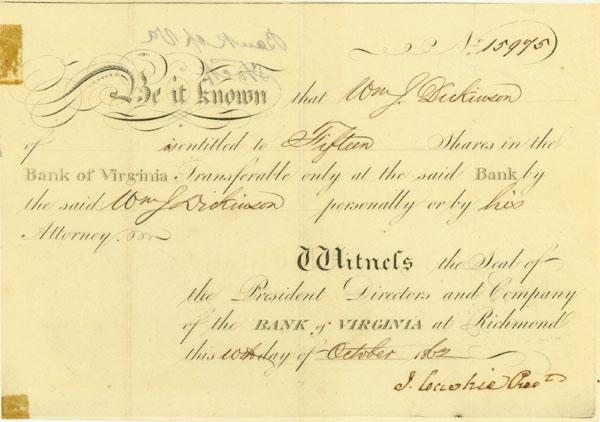 No. 15975
Be it known that Wm J. Dickinson
of is entitled to Fifteen Shares in the
Bank of Virginia Transferable only at the said Bank by
the said Wm J Dickinson personally or by his
Attorney.
Witness the Seal of
the President Directors and Company
of the BANK of VIRGINIA at Richmond
this 10th day of October 1862
J. Caskie Prest